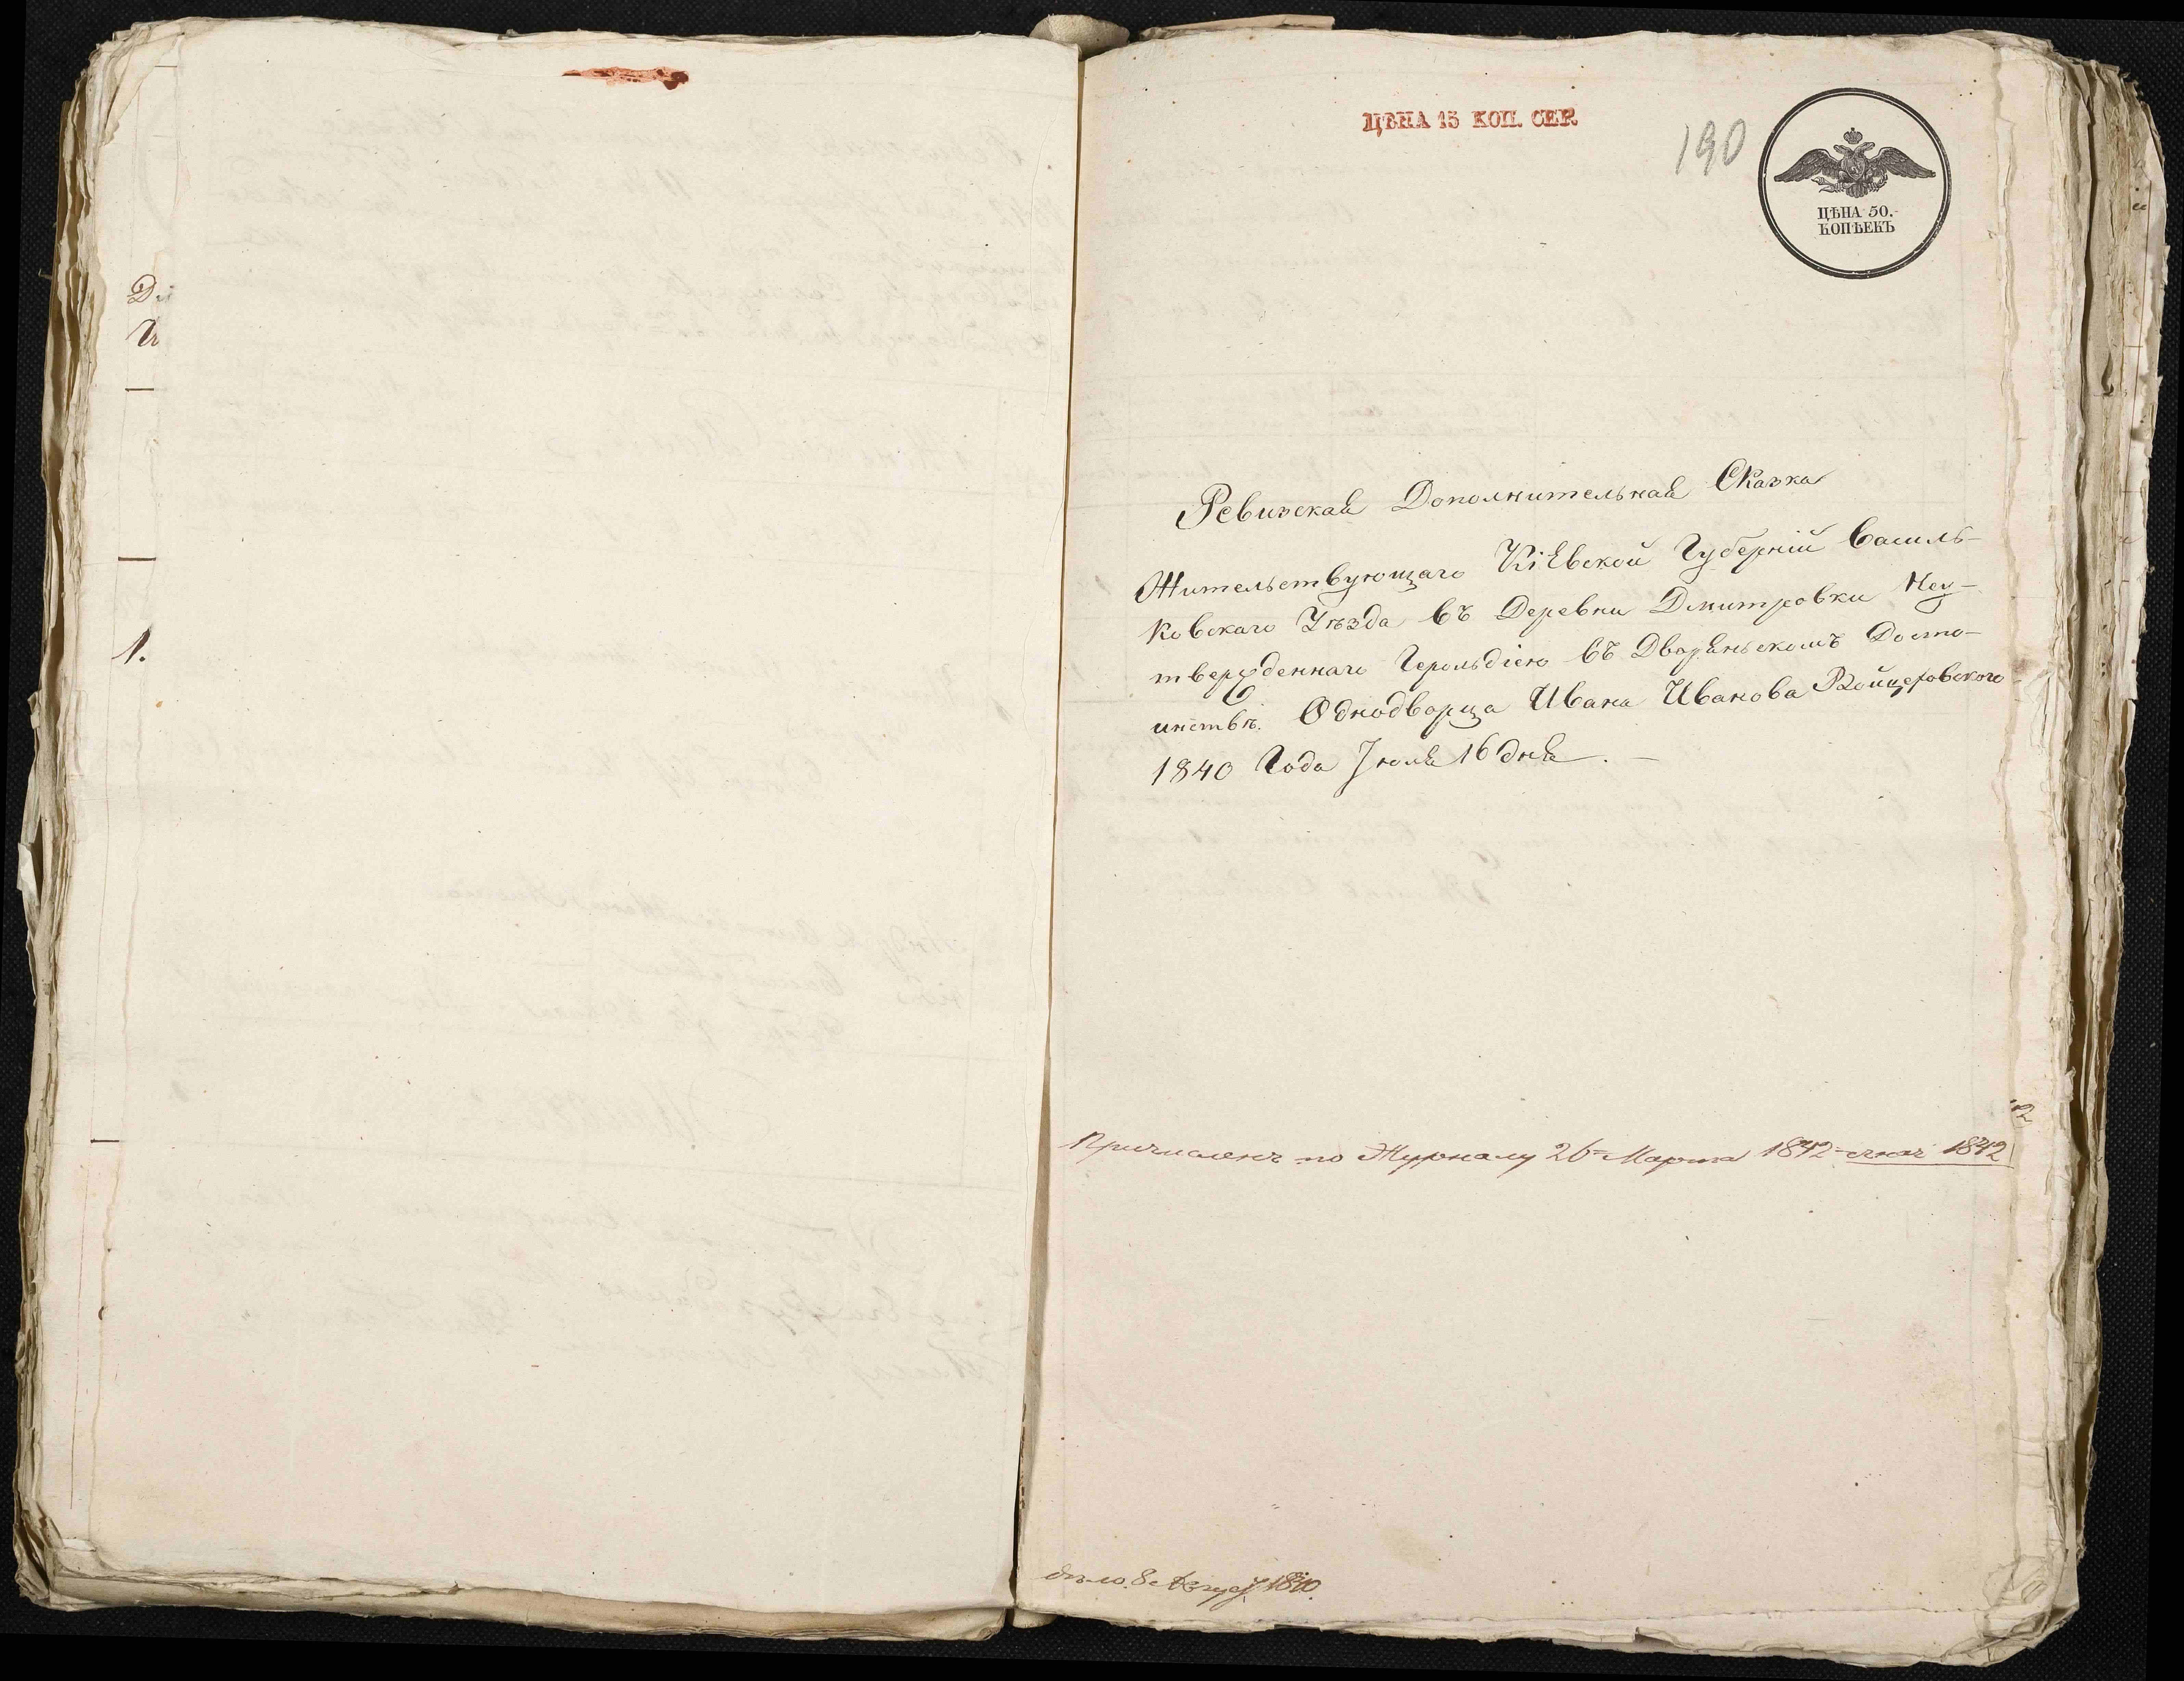 Д
И
1.
ЦѢНА 15 КОП. СЕР.
190
ЦѢНА 50.
КОПѢЕКЪ
Ревизская Дополнительная Сказка
Жительствующаго Кіевской Губерніи Василь-
ковскаго Уѣзда въ Деревни Дмитровки Неу-
твержденнаго Герольдіею въ Дворянскомъ Досто-
инствѣ. Однодворца Ивана Иванова Войцеховского
1840 Года Іюля 16 дня. —
Причисленъ по Журналу 26 Марта 1842 1842
8 Август 1840.